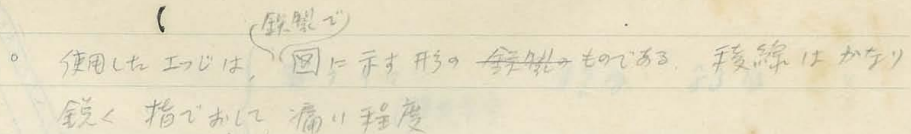 (鉄製で)
。使用したエッジは、図に示す形の鉄製のものである. 稜線はかなり
鋭く 指でおして 痛い程度